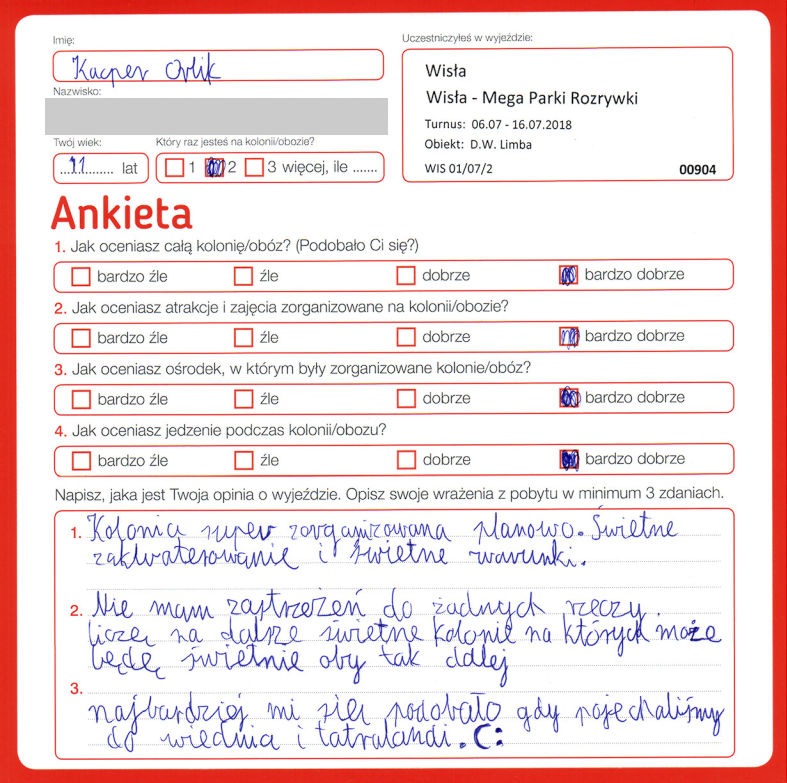 Imię:
Kacper Orlik
Nazwisko:
Twój wiek:
11 lat
Który raz jesteś na kolonii/obozie?
1 2 3 więcej, ile .......
Uczestniczyłeś w wyjeździe:
Wisła
Wisła - Mega Parki Rozrywki
Turnus: 06.07 - 16.07.2018
Obiekt: D.W. Limba
WIS 01/07/2 00904
Ankieta
1. Jak oceniasz całą kolonię/obóz? (Podobało Ci się?)
bardzo źle źle dobrze bardzo dobrze
2. Jak oceniasz atrakcje i zajęcia zorganizowane na kolonii/obozie?
bardzo źle źle dobrze bardzo dobrze
3. Jak oceniasz ośrodek, w którym były zorganizowane kolonie/obóz?
bardzo źle źle dobrze bardzo dobrze
4. Jak oceniasz jedzenie podczas kolonii/obozu?
bardzo źle źle dobrze bardzo dobrze
Napisz, jaka jest Twoja opinia o wyjeździe. Opisz swoje wrażenia z pobytu w minimum 3 zdaniach.
1. Kolonia super zorganizowana planowo. Świetne
zakwaterowanie i świetne warunki.
2. Nie mam zastrzeżeń do żadnych rzeczy.
liczę na dalsze świetne kolonie na których może
będę świetnie oby tak dalej
3.
najbardziej mi się podobało gdy pojechaliśmy
do wiednia i tatralandi. C: